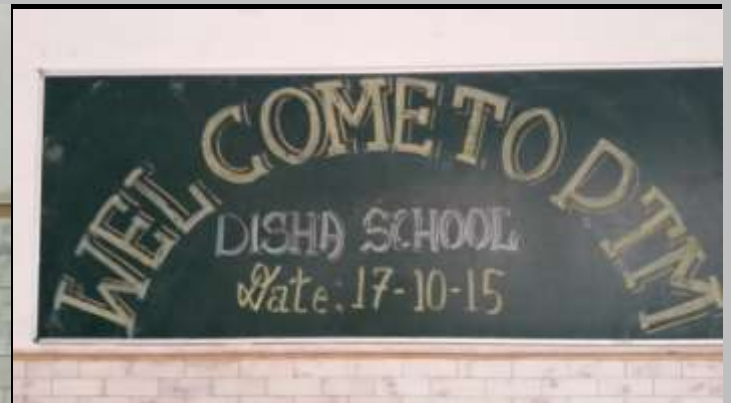 WELCOME TO PTM
DISHA SCHOOL
Date: 17-10-15